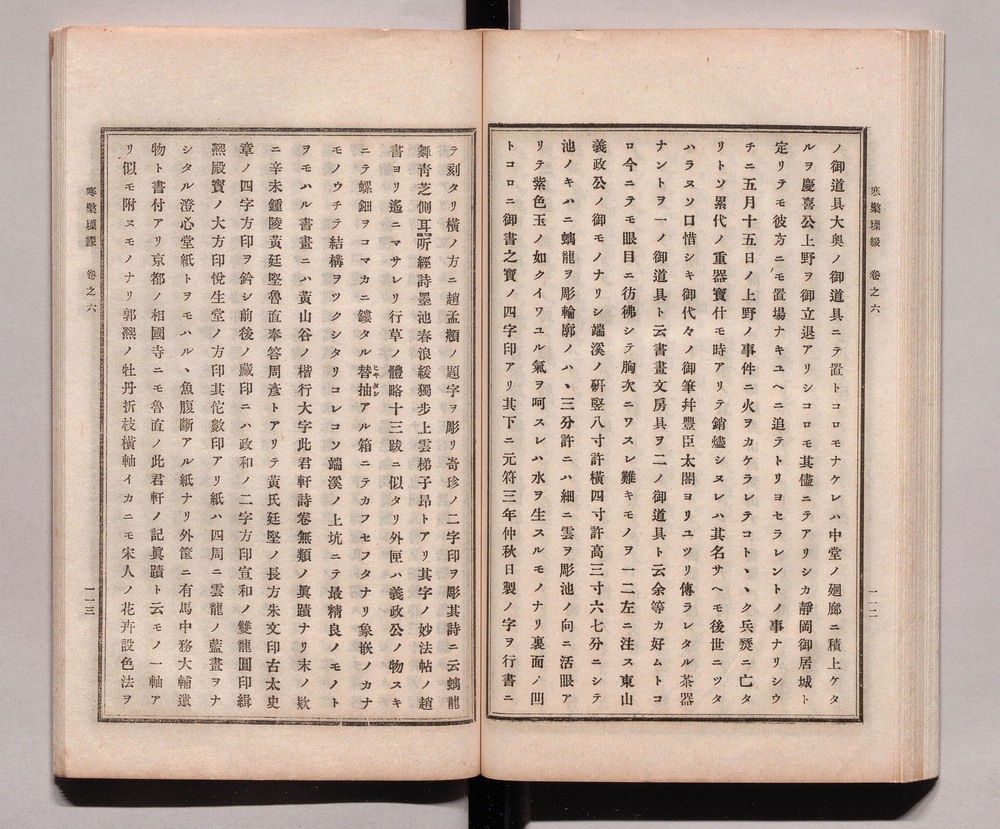 寒檠璅綴　卷之六　一一二
ノ御道具大奥ノ御道具ニテ置トコロモナケレハ中堂ノ廻廊ニ積上ケタ
ルヲ慶喜公上野ヲ御立退アリシコロモ其儘ニテアリシカ靜岡御居城ト
定リテモ彼方ニモ置場ナキユヘニ追テトリヨセラレントノ事ナリシウ
チニ五月十五日ノ上野ノ事件ニ火ヲカケラレテコトヽク兵燹ニ亡タ
リトソ累代ノ重器寶什モ時アリテ銷燼シヌレハ其名サヘモ後世ニツタ
ハラヌソ口惜シキ御代々ノ御筆幷豐臣太閤ヨリユツリ傳ラレタル茶器
ナントヲ一ノ御道具ト云書畫文房具ヲ二ノ御道具ト云余等カ好ムトコ
ロ今ニテモ眼目ニ彷彿シテ胸次ニワスレ難キモノヲ一二左ニ注ス東山
義政公ノ御モノナリシ端溪ノ硏竪八寸許橫四寸許高三寸六七分ニシテ
池ノキハニ螭龍ヲ彫輪廓ノハヽ三分許ニハ細ニ雲ヲ彫池ノ向ニ活眼ア
リテ紫色玉ノ如クイワユル氣ヲ呵スレハ水ヲ生スルモノナリ裏面ノ凹
トコロニ御書之寶ノ四字印アリ其下ニ元符三年仲秋日製ノ字ヲ行書ニ
テ刻タリ橫ノ方ニ趙孟頫ノ題字ヲ彫リ奇珍ノ二字印ヲ彫其詩ニ云螭龍
舞靑芝側耳听經詩墨池春浪緩獨步上雲梯子昂トアリ其字ノ妙法帖ノ趙
書ヨリ遙ニマサレリ行草ノ體略十三跋ニ似タリ外匣ハ義政公ノ物スキ
ニテ螺鈿ヲコマカニ鏤タル替抽アル箱ニテカフセフタナリ象嵌ノカナ
モノウチテ結構ヲツクシタリコレコソ端溪ノ上坑ニテ最精良ノモノト
ヲモハル書畫ニハ黃山谷ノ楷行大字此君軒詩卷無類ノ眞蹟ナリ末ノ欵
ニ辛未鍾陵黃廷堅魯直奉答周彥トアリテ黃氏廷堅ノ長方朱文印古太史
章ノ四字方印ヲ鈐シ前後ノ藏印ニハ政和ノ二字方印宣和ノ雙龍圓印緝
熙殿寶ノ大方印悅生堂ノ方印其佗數印アリ紙ハ四周ニ雲龍ノ藍畫ヲナ
シタル澄心堂紙トヲモハルヽ魚腹斷アル紙ナリ外筐ニ有馬中務大輔遺
物ト書付アリ京都ノ相國寺ニモ魯直ノ此君軒ノ記眞蹟ト云モノ一軸ア
リ似モ附ヌモノナリ郭熙ノ牡丹折枝橫軸イカニモ宋人ノ花卉設色法ヲ
寒檠璅綴　卷之六　一一三